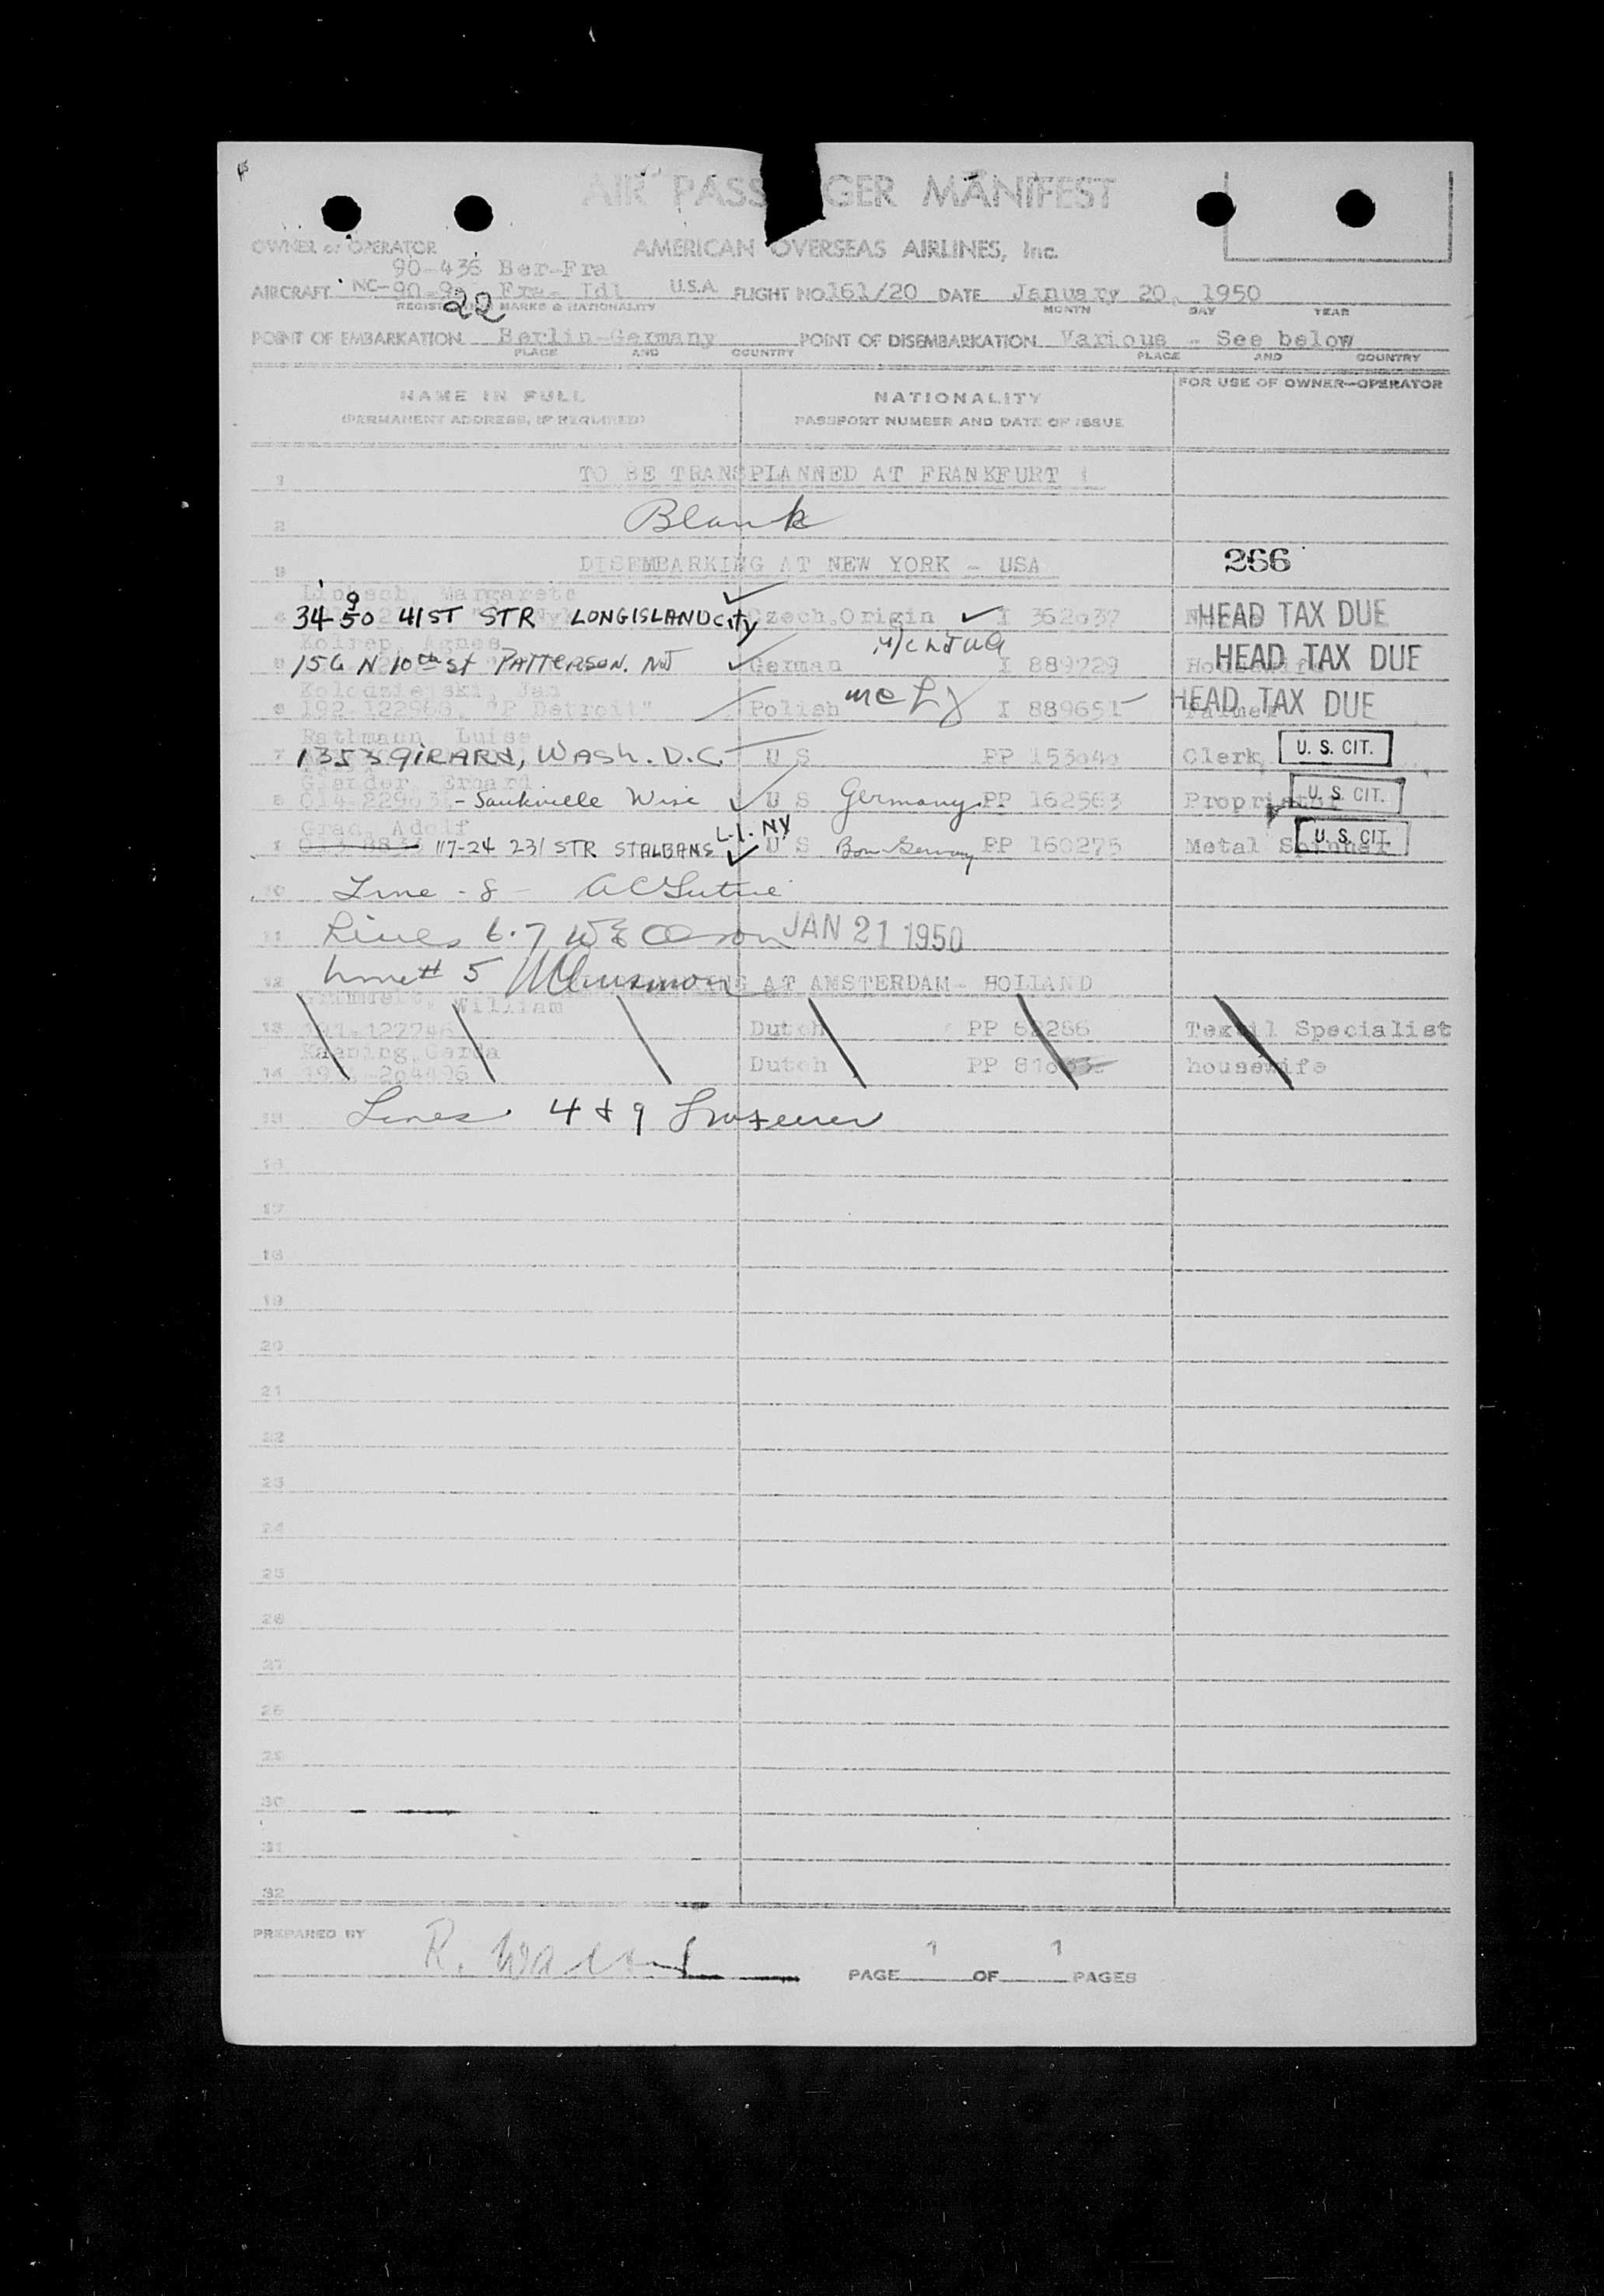 AIR PASS GER MANIFEST
OWNER or OPERATOR AMERICAN OVERSEAS AIRLINES, Inc.
90-436 Ber-Fra
AIRCRAFT NC-90-9 22 Fra- Idl U.S.A. FLIGHT NO 161/20 DATE January 20, 1950
MARKS & NATIONALITY MONTH DAY YEAR
POINT OF EMBARKATION Berlin-Germany POINT OF DISEMBARKATION Various - See below
PLACE AND COUNTRY PLACE AND COUNTRY
NAME IN FULL NATIONALITY FOR USE OF OWNER-OPERATOR
(PERMANENT ADDRESS, IF REQUIRED) PASSPORT NUMBER AND DATE OF ISSUE
1 TO BE TRANSPLANNED AT FRANKFURT
2 Blank
3 DISEMBARKING AT NEW YORK - USA 266
Margarete
4 34-50 41ST STR LONGISLAND City Czech.Origin I 362o37 HEAD TAX DUE
Agnes
5 156 N 10th St PATTERSON. NJ German I 889729 HEAD TAX DUE
Kolodziejski, Jan
6 192-122966, "P Detroit" Polish I 889651 Farmer HEAD TAX DUE
Rathmann, Luise
7 1353 GIRARD, WASh. D.C. U S PP 153o4o Clerk, U. S. CIT.
Erhard
8 - Saukville Wisc U S Germany PP 162563 Proprietor U. S. CIT.
Grad, Adolf
9 117-24 231 STR STALBANS L.I. NY U S Born Germany PP 160275 Metal Spinner U. S. CIT.
10 Line - 8 -
11 Lines 6-7 JAN 21 1950
12 Line # 5 AT AMSTERDAM- HOLLAND
William
13 Dutch PP 62286 Textil Specialist
Gerda
14 Dutch PP housewife
15 Lines 4 & 9
16
17
18
19
20
21
22
23
24
25
26
27
28
29
30
31
32
PREPARED BY R.
PAGE 1 OF 1 PAGES